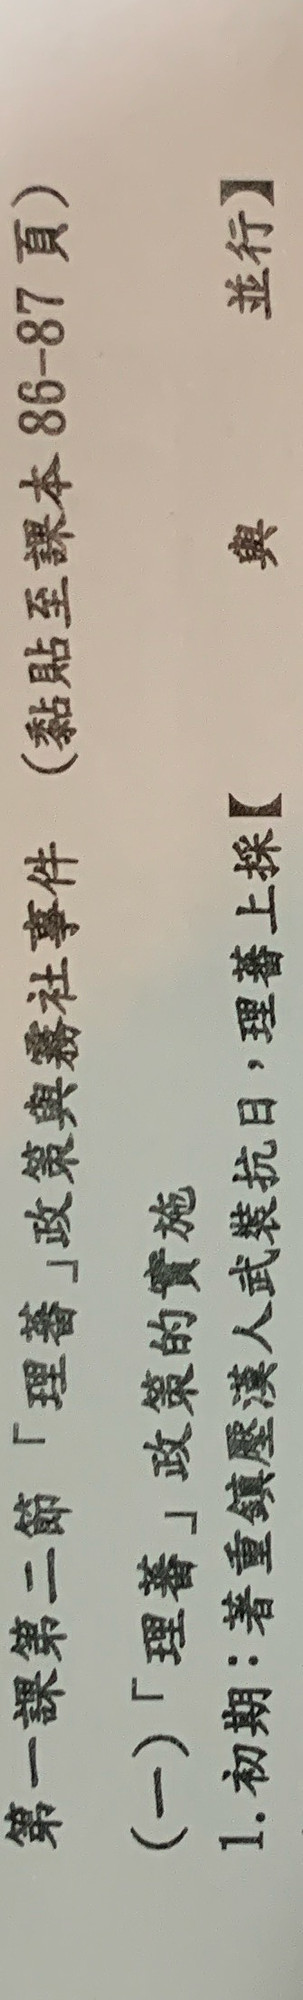 第一課第二節「理蕃」政策與霧社事件 (黏貼至課本 86-87 頁)
(一)「理蕃」政策的實施
1.初期：著重鎮壓漢人武裝抗日，理蕃上採【 與 並行】